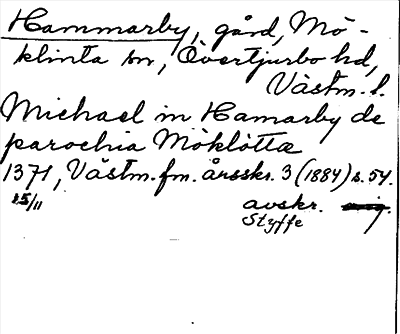 Hammarby, gård, Mö-
klinta sn, Övertjurbo hd,
Västm. l.
Michael in Hamarby de
parochia Möklötta
1371, Västm. fm. årsskr. 3 (1884) s. 54.
15/11 avskr.
Styffe